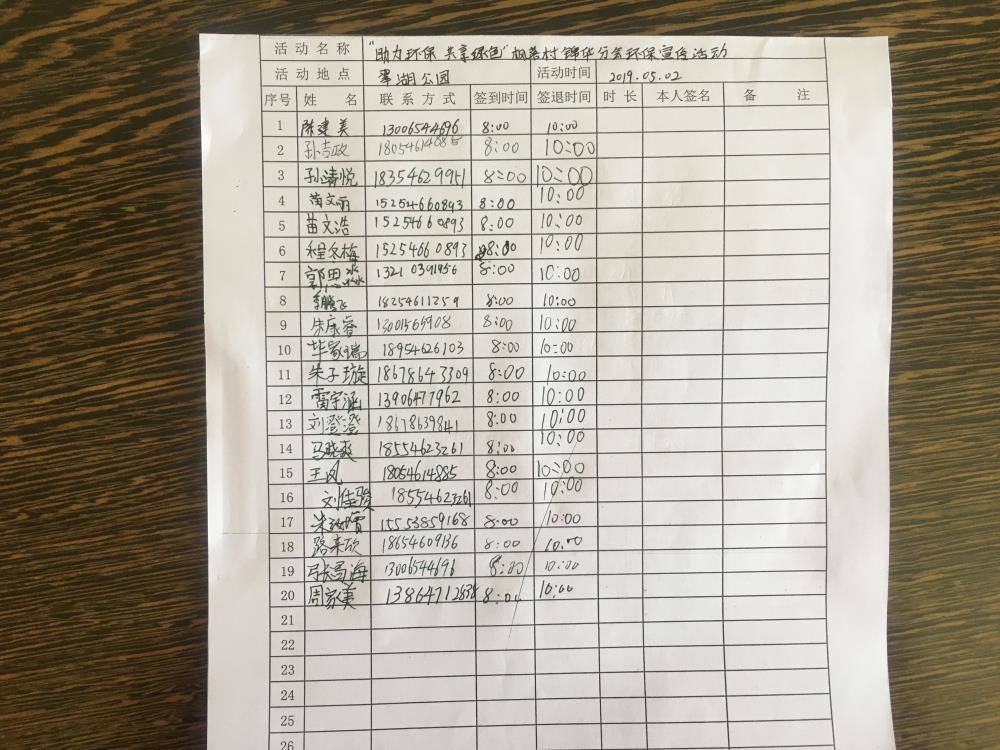 活动名称 "助力环保 共享绿色" 村锦华分会环保宣传活动
活动地点 翠湖公园 活动时间 2019.05.02
序号 姓名 联系方式 签到时间 签退时间 时长 本人签名 备注
1 陈建美 13006544696 8:00 10:00
2 孙吉政 18054614885 8:00 10:00
3 孙清悦 18354629951 8:00 10:00
4 苗文丽 15254660893 8:00 10:00
5 苗文浩 15254660893 8:00 10:00
6 程冬梅 15254660893 8:00 10:00
7 郭思淼 13210391956 8:00 10:00
8 李鹏飞 18254611259 8:00 10:00
9 朱康睿 13001565908 8:00 10:00
10 毕家瑞 18954626103 8:00 10:00
11 朱子璇 18678643309 8:00 10:00
12 雷宇涵 13906477962 8:00 10:00
13 刘登澄 18678639841 8:00 10:00
14 马晓爽 18554623261 8:00 10:00
15 王凤 18054614885 8:00 10:00
16 刘佳骏 18554623261 8:00 10:00
17 朱 15553859168 8:00 10:00
18 路来欣 18654609136 8:00 10:00
19 张寻海 13006544696 8:00 10:00
20 周家美 13864712838 8:00 10:00
21
22
23
24
25
26